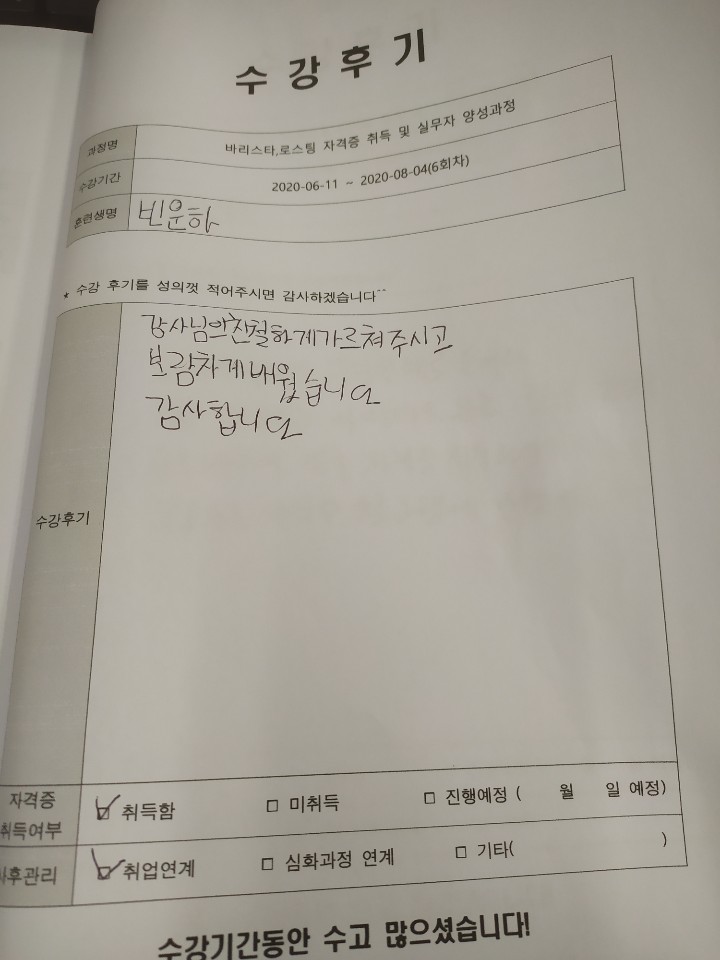 수강후기
과정명 바리스타,로스팅 자격증 취득 및 실무자 양성과정
수강기간 2020-06-11 ~ 2020-08-04(6회차)
훈련생명 빈운하
* 수강 후기를 성의껏 적어주시면 감사하겠습니다^^
강사님의친절하게가르쳐주시고
보람차게배웠습니다
감사합니다
수강후기
자격증
취득여부
☑ 취득함 □ 미취득 □ 진행예정 ( 월 일 예정)
사후관리 ☑ 취업연계 □ 심화과정 연계 □ 기타( )
수강기간동안 수고 많으셨습니다!